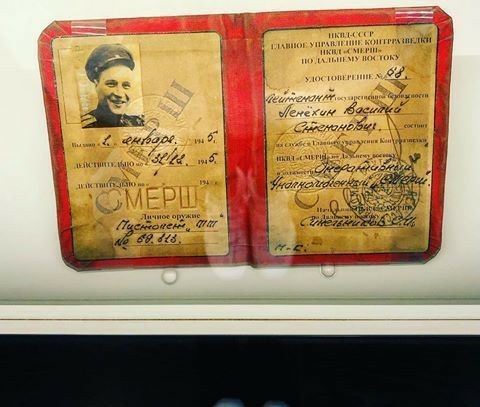 Выдано 2 января 1945
ДЕЙСТВИТЕЛЬНО по 31/12 1945
ДЕЙСТВИТЕЛЬНО по 194
СМЕРШ
Личное оружие
Пистолет "ТТ"
No
НКВД-СССР
ГЛАВНОЕ УПРАВЛЕНИЕ КОНТРРАЗВЕДКИ
НКВД «СМЕРШ»
ПО ДАЛЬНЕМУ ВОСТОКУ
УДОСТОВЕРЕНИЕ № 88.
Лейтенант Государственной безопасности
Василий
Степанович состоит
на службе в Главного управления Контрразведки
НКВД «СМЕРШ» по Дальнему востоку
в должности Оперативный
Уполномоченный
Начальник
по Дальнему востоку
Синельников